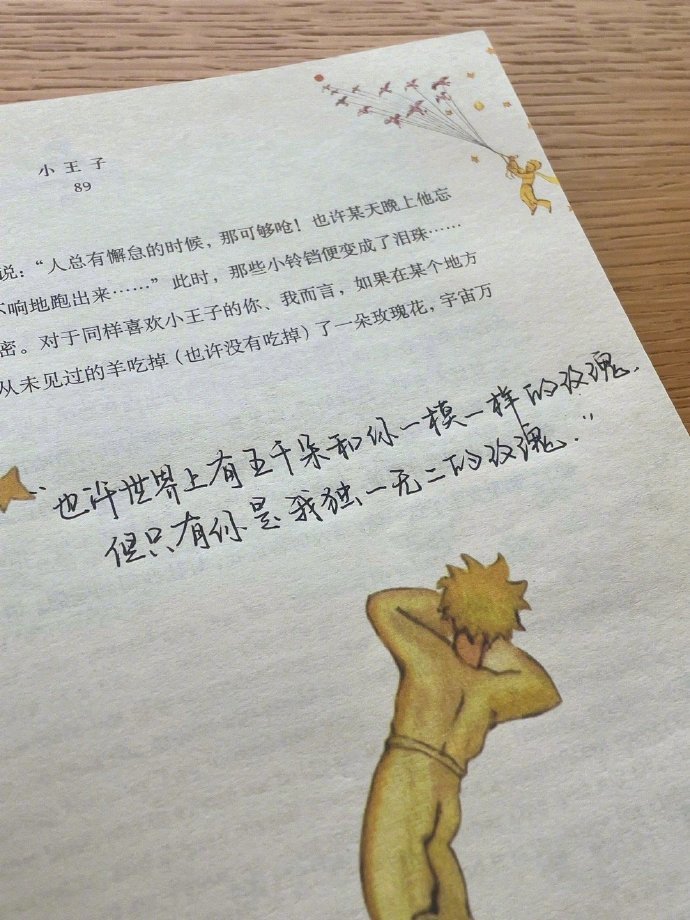 小王子
89
说：“人总有懈怠的时候，那可够呛！也许某天晚上他忘
不响地跑出来……”此时，那些小铃铛便变成了泪珠……
密。对于同样喜欢小王子的你、我而言，如果在某个地方
从未见过的羊吃掉（也许没有吃掉）了一朵玫瑰花，宇宙万
“也许世界上有五千朵和你一模一样的玫瑰.
但只有你是我独一无二的玫瑰.”